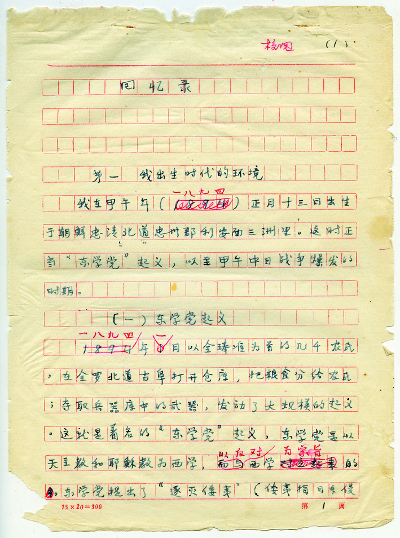 (1)
回忆录
第一 我出生时代的环境
一八九四
我在甲午年( )正月十三日出生
于朝鲜忠清北道忠州郡利安面三洲里。恰时正
当“东学党”起义,以至甲午中日战争爆发的
时期。
(一)东学党起义
一八九四 一
1894年 月以全琫准为首的几千农民
,在全罗北道古阜打开仓库,把粮食分给农民
;夺取兵器库中的武器,发动了大规模的起义
。这就是著名的“东学党”起义,东学党是以
以反对 为宗旨
天主教和耶稣教为西学, 西学 的
。东学党提出了“逐灭倭夷”(倭夷指日本侵
15×20=300
第 1 页